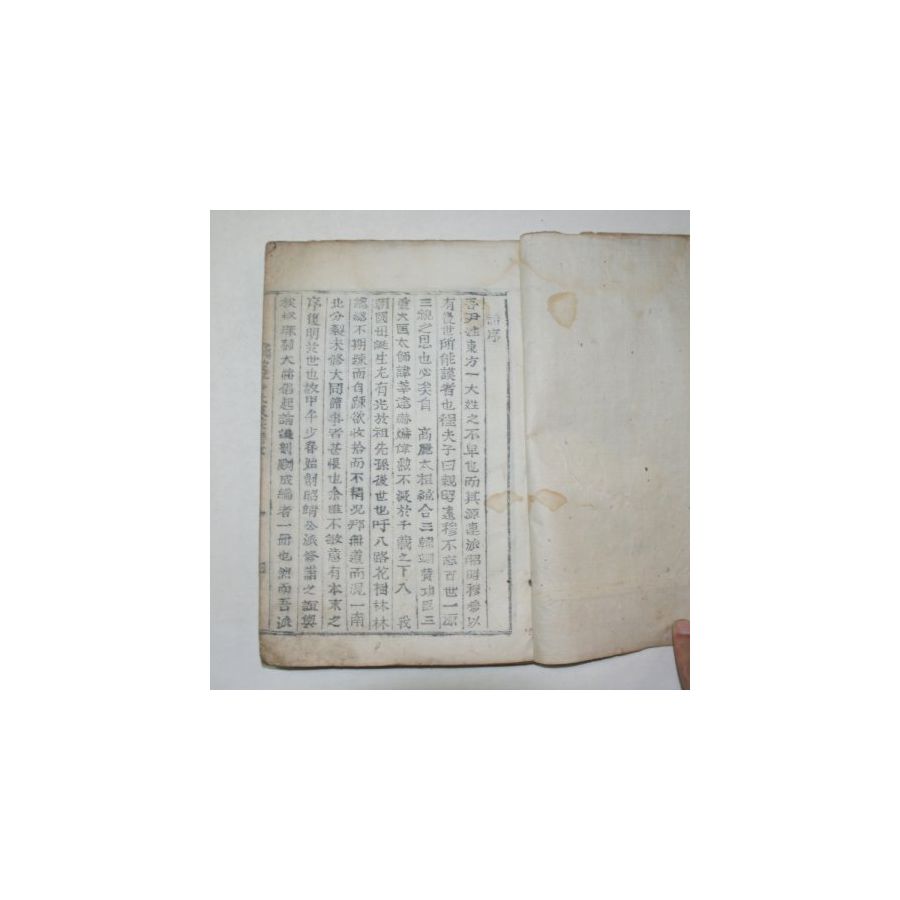 譜序
吾尹姓東方一大姓之不卑也而其源遠派昭時移以
有後世所能謨者也程夫子曰親昭遠穆不忘百世一源
三統之思也必矣自 高麗太祖統合三韓翊贊功臣三
重大匡太師諱莘達赫爀偉勳不泯於千載之下入 我
朝國母誕生尤有光於祖先孫後世也吁八路花樹林林
不期疎而自疎欲收拾而不精況邦無道而混一南
北分裂未修大同譜事者甚悵也余雖不敏意有本末之
序復明於世也故甲午少春始刱昭靖公派修譜之誼與
族大譜論議剞劂成編者一冊也然而吾派